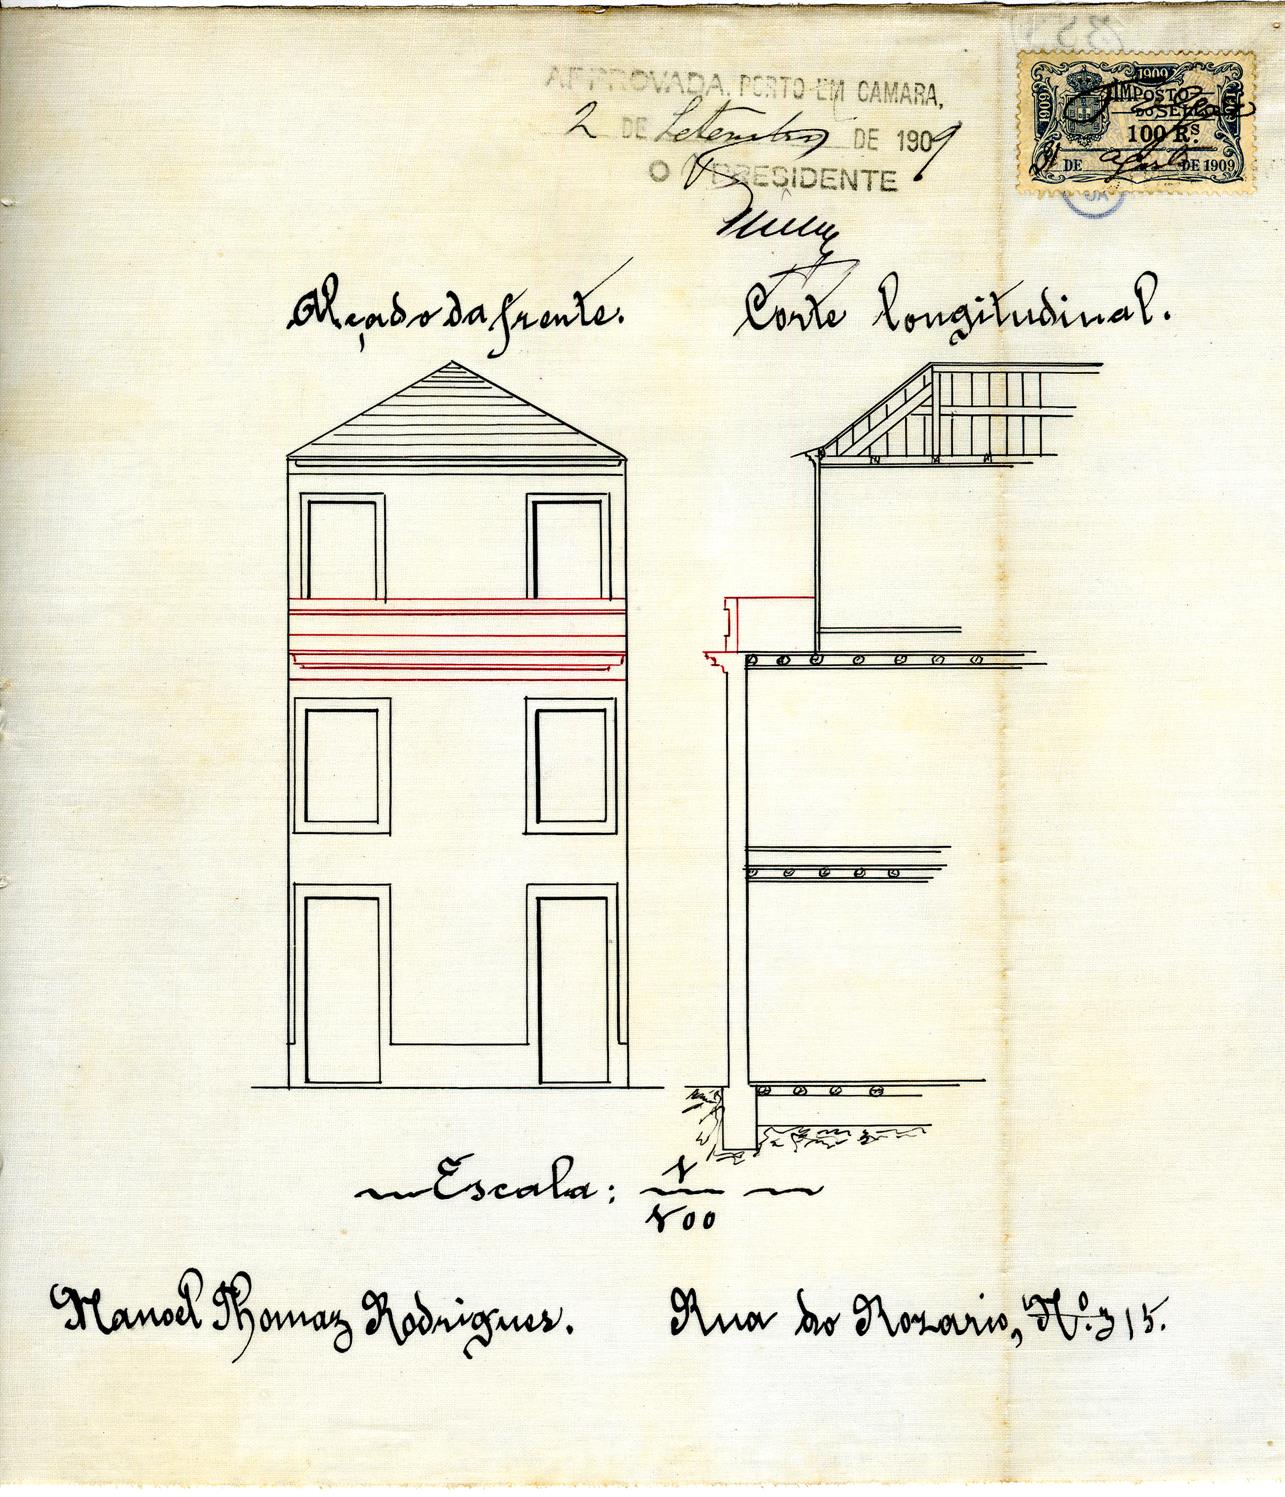 APPROVADA. PORTO EM CAMARA,
2 DE Setembro DE 1909
O PRESIDENTE
1909
1909
IMPOSTO
DO SELLO
100 RS.
31 DE Agosto DE 1909
Alçado da frente.
Corte longitudinal.
Escala: 1/100
Manoel Thomaz Rodrigues.
Rua do Rozario, Nº. 315.